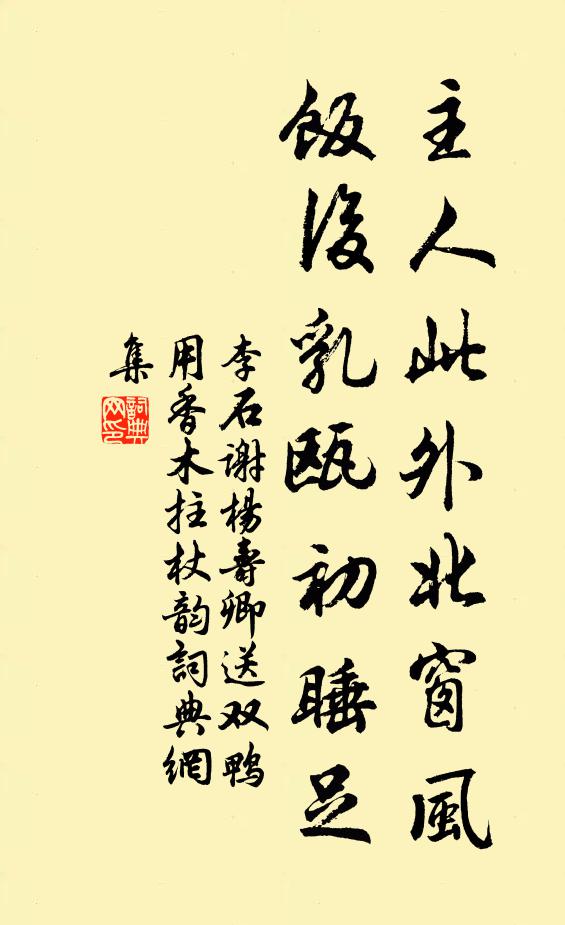 主人此外北窗風
飯後乳甌初睡足
李石謝楊壽卿送双鴨
用香木拄杖韵詞典網
集
詞典
网印